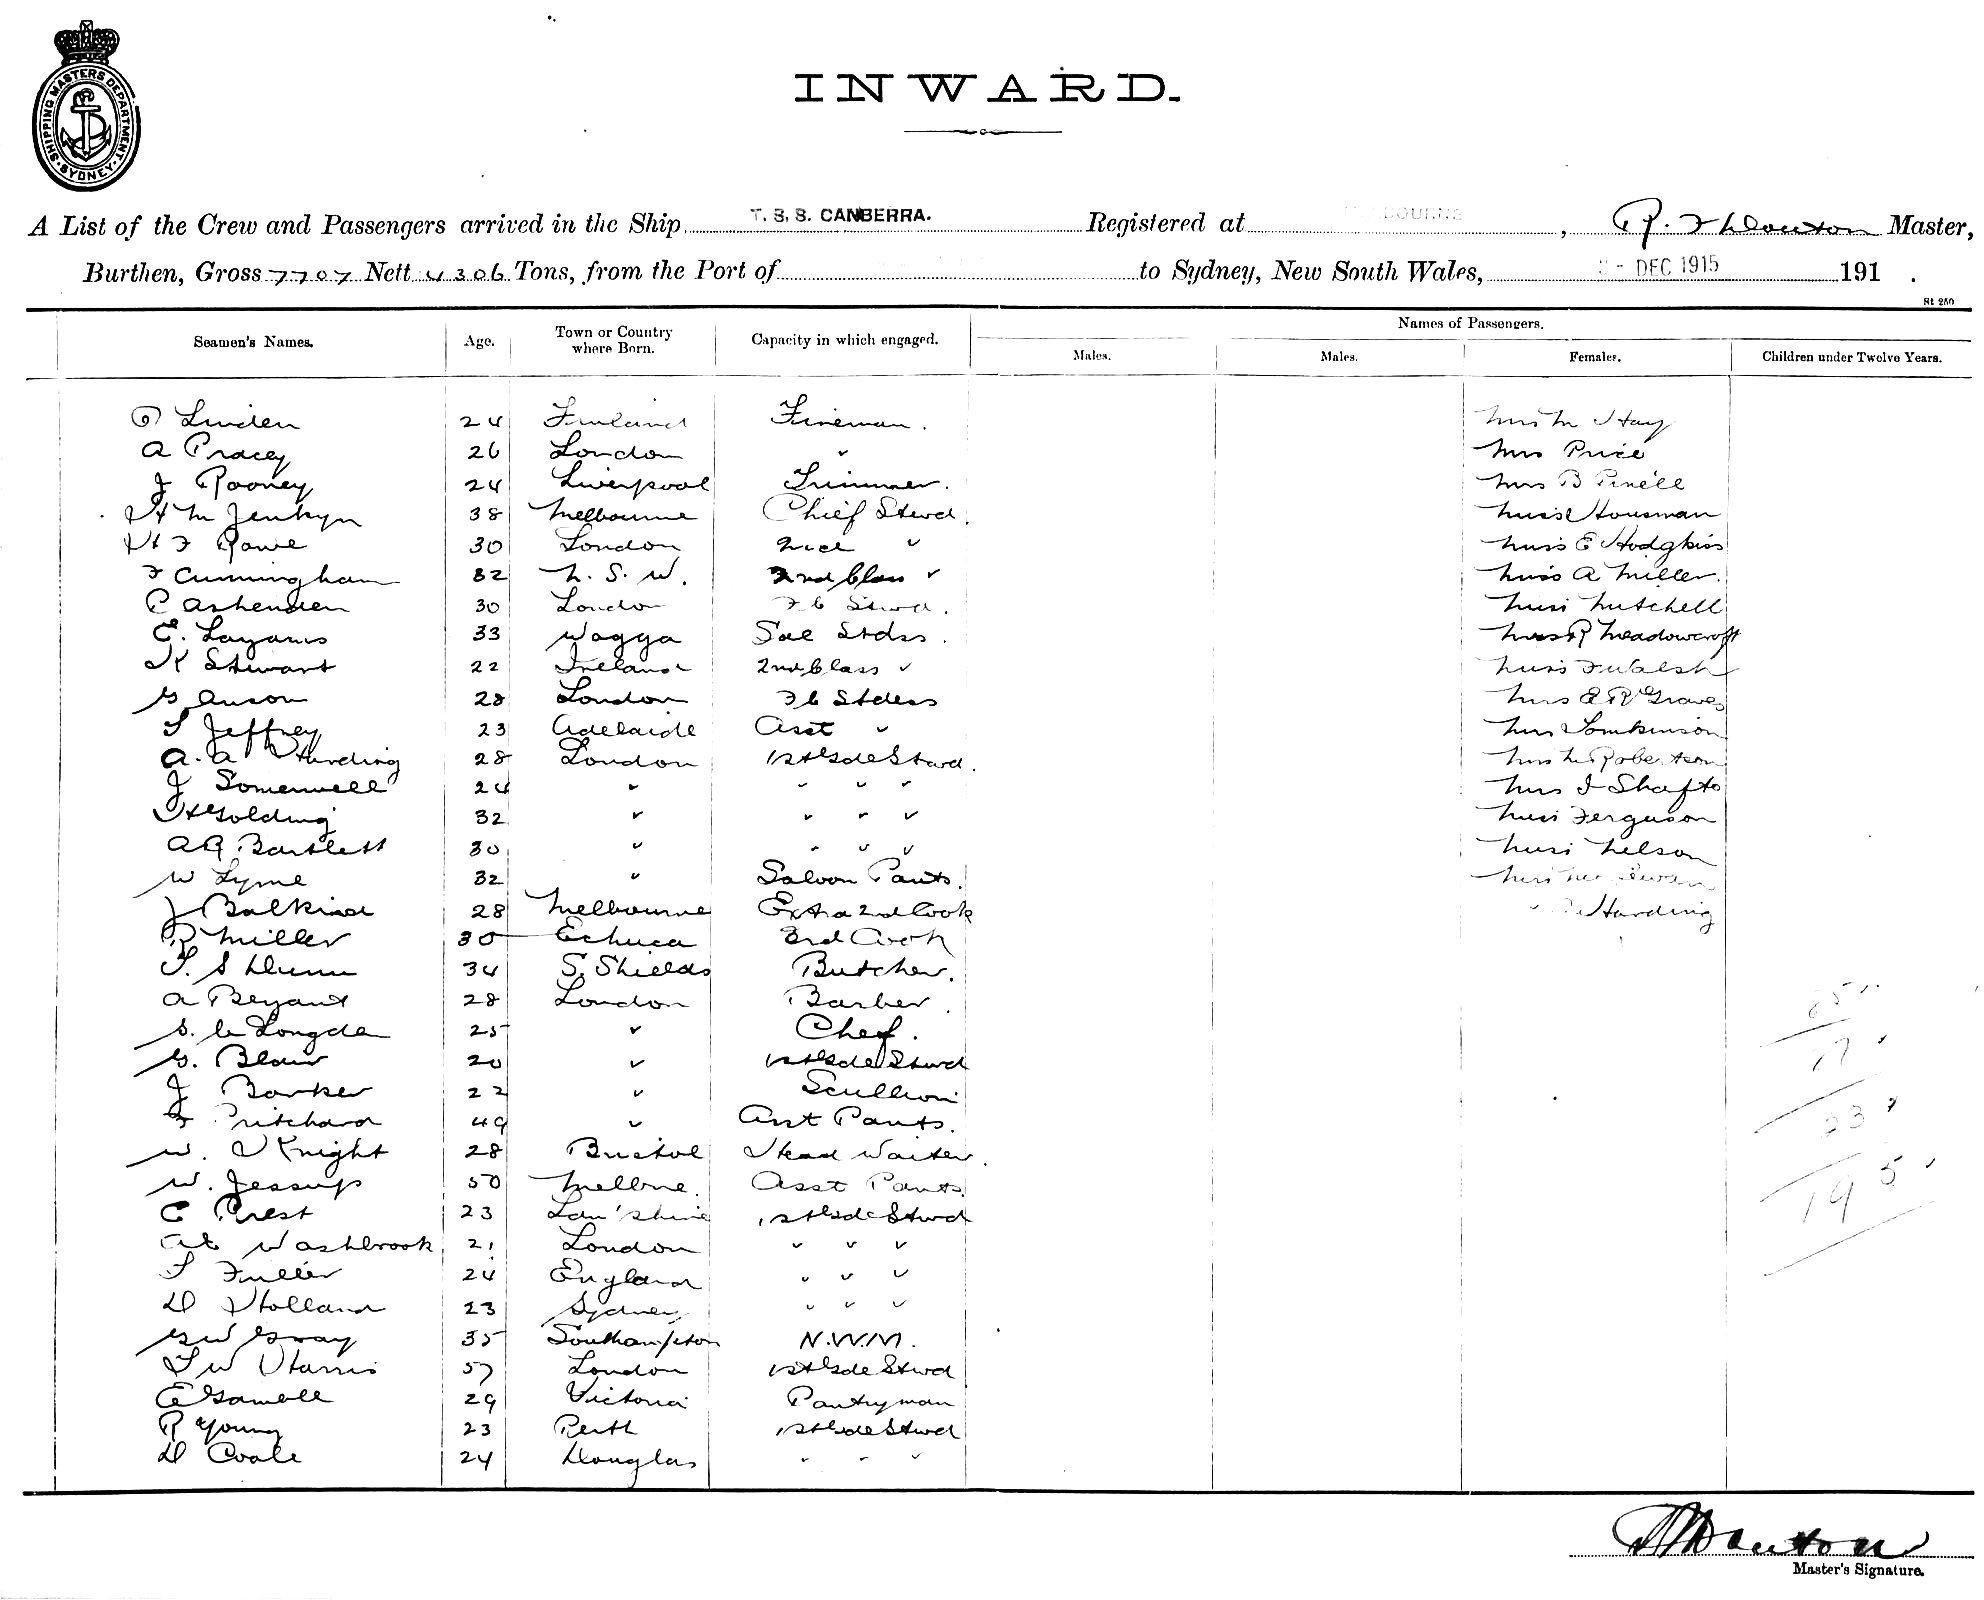 SHIPPING MASTERS DEPARTMENT
SYDNEY
INWARD.
A List of the Crew and Passengers arrived in the Ship T.S.S. CANBERRA. Registered at , Master,
Burthen, Gross 7707 Nett 4306 Tons, from the Port of to Sydney, New South Wales, DEC 1915 191 .
St 250
Seamen's Names. Age. Town or Country where Born. Capacity in which engaged. Names of Passengers.
Males. Males. Females. Children under Twelve Years.
Linden 24 Finland Fireman. Mrs M Hay
A Pracey 26 London " Mrs Price
J Rooney 24 Liverpool Trimmer. Mrs B Pinell
H M Jenkyn 38 Melbourne Chief Stwd. Miss Housman
H F Rowe 30 London 2nd " Miss E Hodgkiss
F Cunningham 32 N.S.W. 2nd Class " Miss A Miller.
P Ashenden 30 London F C Stwd. Miss Mitchell
E. Layams 33 Wagga Sal Stdss. R Meadowcroft
K Stewart 22 Ireland 2nd Class " Miss F Walsh
G Anson 28 London F C Stdess Mrs E R Graves
S Jeffrey 23 Adelaide Asst " Tomkinson
A.A Harding 28 London 1st Gde Stwd. Robertson
J Somerwell 24 " " " " Mrs J Shafto
H Golding 32 " " " " Miss Ferguson
A R Bartlett 30 " " " " Miss Nelson
W Lyne 32 " Saloon Pants. Miss
J Balkind 28 Melbourne Extra 2nd Cook " Harding
R Miller 30 Echuca 3rd Cook
T. S Dunn 34 S. Shields Butcher.
A Bryant 28 London Barber.
S. C Longden 25 " Chef.
G. Blair 20 " 1st Gde Stwd
J Barker 22 " Scullion
F Pritchard 49 " Asst Pants.
W. Knight 28 Bristol Head Waiter.
W. Jessup 50 Melbne. Asst Pants.
C Prest 23 Lan'shire 1st Gde Stwd
A E Washbrook 21 London " " "
S Fuller 24 England " " "
D Holland 23 Sydney " " "
G W Gray 35 Southampton N.W.M.
T W Harris 57 London 1st Gde Stwd
E Gamble 29 Victoria Pantryman
R Young 23 Perth 1st Gde Stwd
D Coole 24 Douglas " " "
17
33
195
Master's Signature.